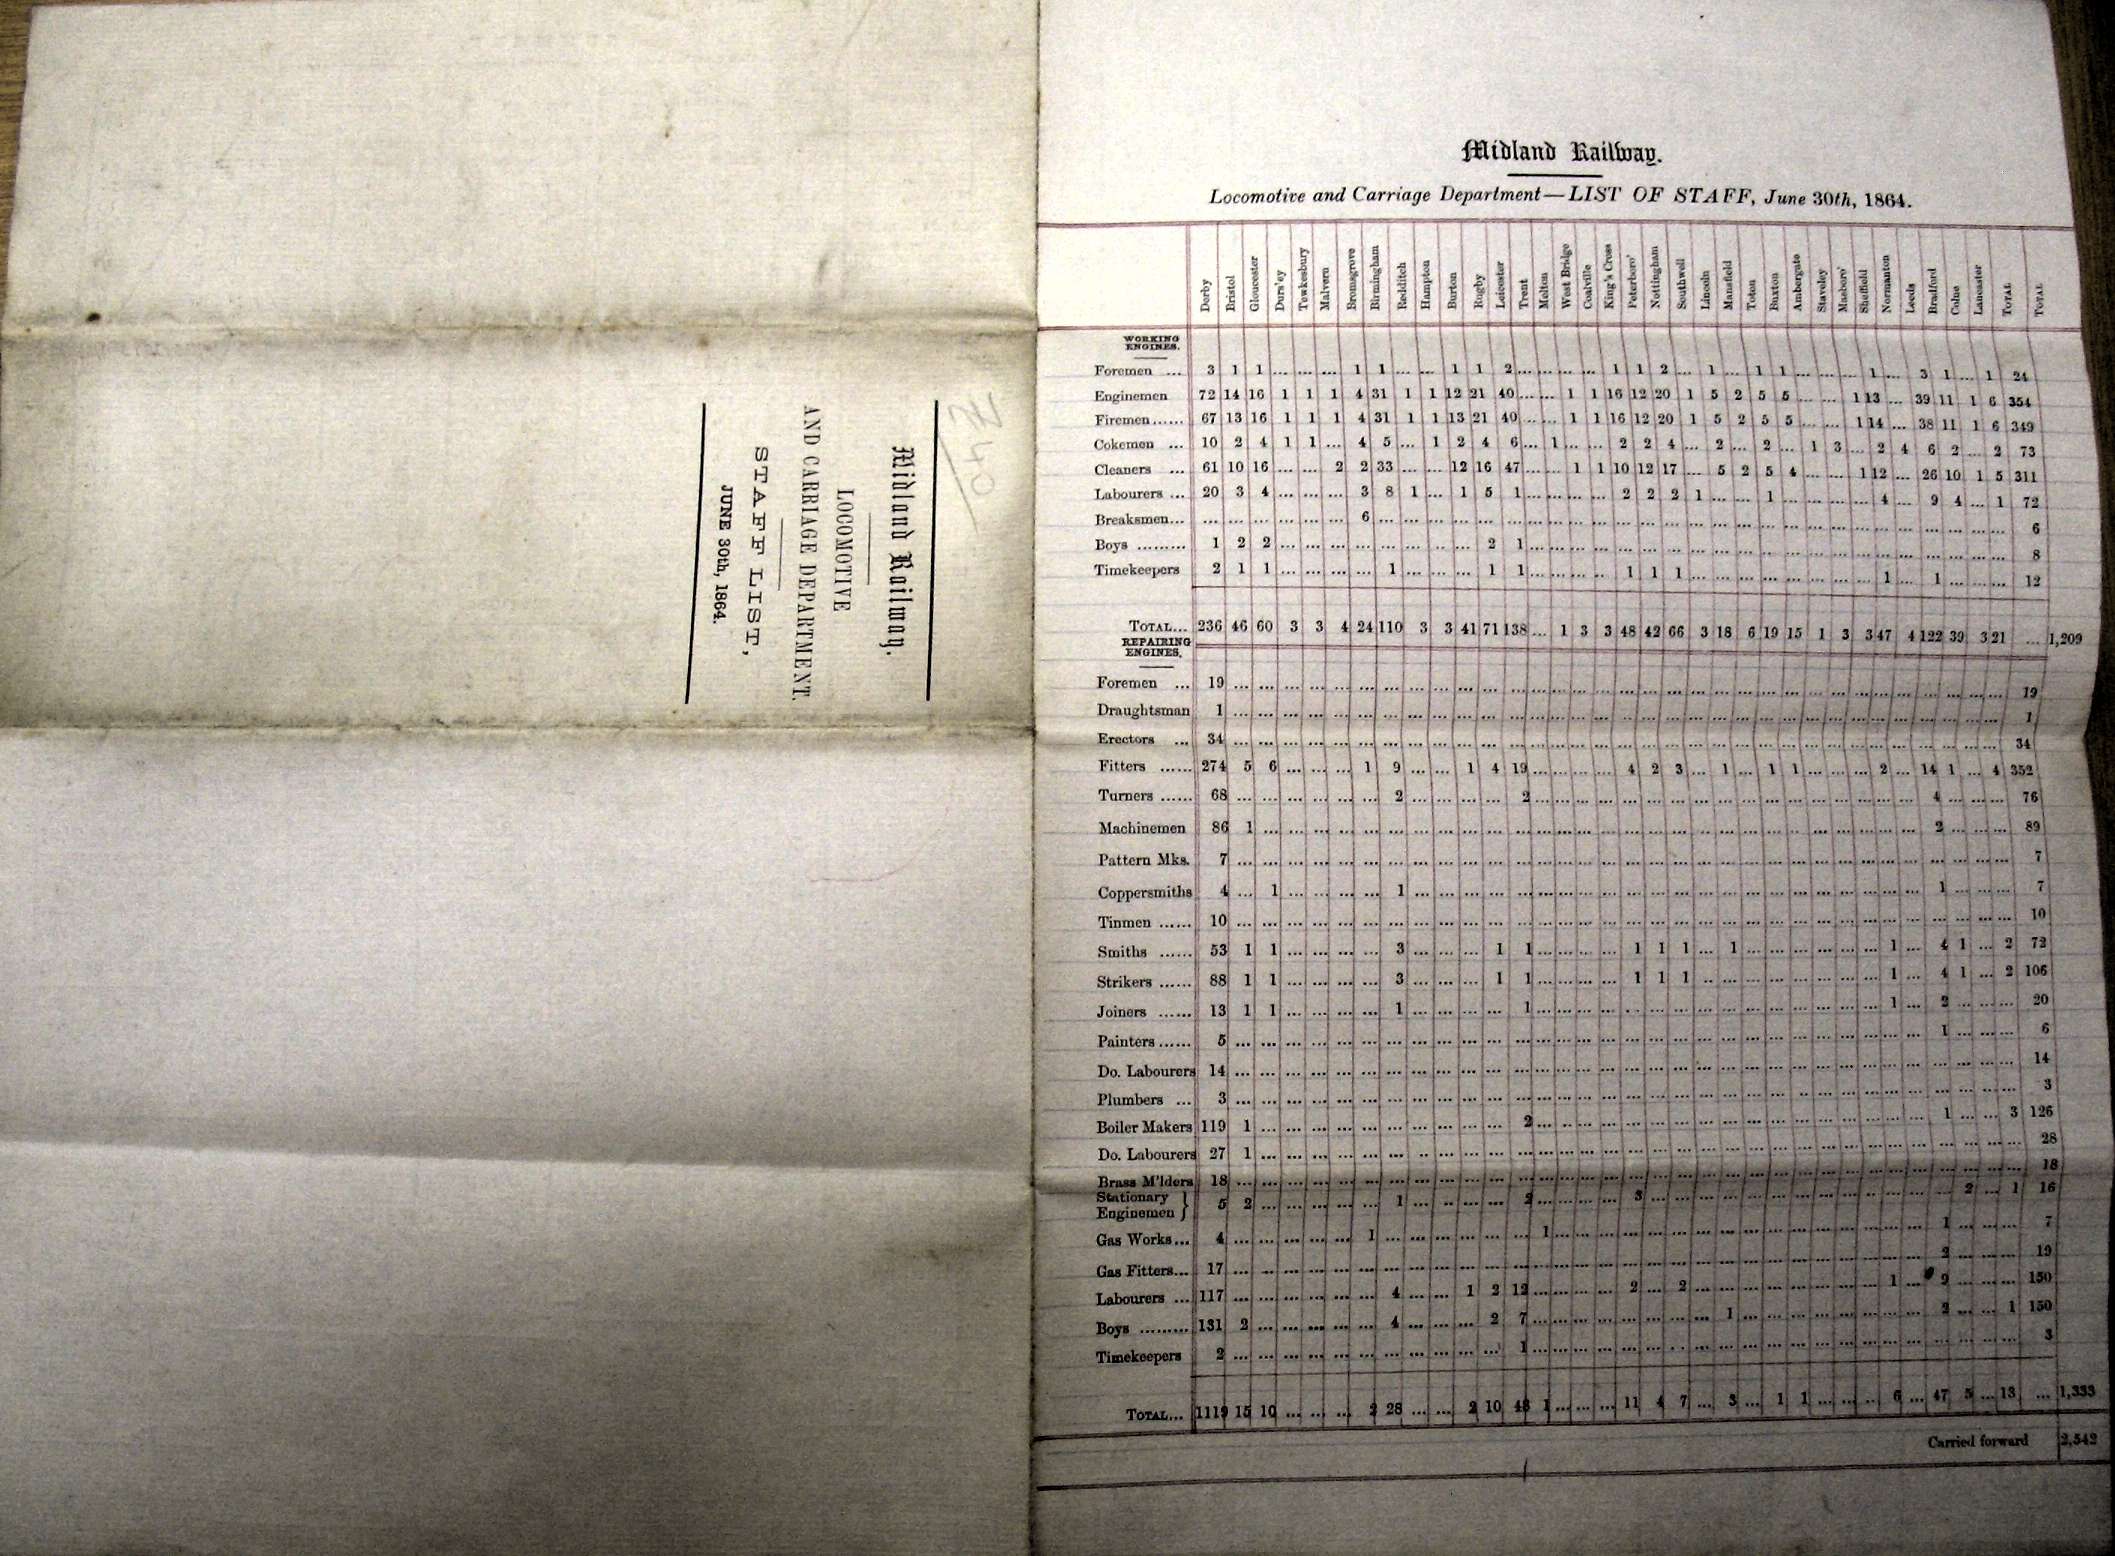 Midland Railway.
LOCOMOTIVE
AND CARRIAGE DEPARTMENT.
STAFF LIST,
JUNE 30th, 1864.
Midland Railway.
Locomotive and Carriage Department—LIST OF STAFF, June 30th, 1864.
Derby Bristol Gloucester Durs'ey Tewkesbury Malvern Bromsgrove Birmingham Redditch Hampton Burton Rugby Leicester Trent Melton West Bridge Coalville King's Cross Peterboro' Nottingham Southwell Lincoln Mansfield Toton Buxton Ambergate Staveley Masboro' Sheffield Normanton Leeds Bradford Colne Lancaster TOTAL TOTAL
WORKING
ENGINES.
Foremen ... 3 1 1 ... ... ... 1 1 ... ... 1 1 2 ... ... ... ... 1 1 2 ... 1 ... 1 1 ... ... ... 1 ... 3 1 ... 1 24
Enginemen 72 14 16 1 1 1 4 31 1 1 12 21 40 ... ... 1 1 16 12 20 1 5 2 5 5 ... ... 1 13 ... 39 11 1 6 354
Firemen ...... 67 13 16 1 1 1 4 31 1 1 13 21 40 ... ... 1 1 16 12 20 1 5 2 5 5 ... ... 1 14 ... 38 11 1 6 349
Cokemen ... 10 2 4 1 1 ... 4 5 ... 1 2 4 6 ... 1 ... ... 2 2 4 ... 2 ... 2 ... 1 3 ... 2 4 6 2 ... 2 73
Cleaners ... 61 10 16 ... ... 2 2 33 ... ... 12 16 47 ... ... 1 1 10 12 17 ... 5 2 5 4 ... ... 1 12 ... 26 10 1 5 311
Labourers ... 20 3 4 ... ... ... 3 8 1 ... 1 5 1 ... ... ... ... 2 2 2 1 ... ... 1 ... ... ... ... 4 ... 9 4 ... 1 72
Breaksmen... ... ... ... ... ... ... 6 ... ... ... ... ... ... ... ... ... ... ... ... ... ... ... ... ... ... ... ... ... ... ... ... ... ... ... 6
Boys ......... 1 2 2 ... ... ... ... ... ... ... ... 2 1 ... ... ... ... ... ... ... ... ... ... ... ... ... ... ... ... ... ... ... ... ... 8
Timekeepers 2 1 1 ... ... ... ... 1 ... ... ... 1 1 ... ... ... ... 1 1 1 ... ... ... ... ... ... ... ... 1 ... 1 ... ... ... 12
TOTAL... 236 46 60 3 3 4 24 110 3 3 41 71 138 ... 1 3 3 48 42 66 3 18 6 19 15 1 3 3 47 4 122 39 3 21 ... 1,209
REPAIRING
ENGINES.
Foremen ... 19 ... ... ... ... ... ... ... ... ... ... ... ... ... ... ... ... ... ... ... ... ... ... ... ... ... ... ... ... ... ... ... ... ... 19
Draughtsman 1 ... ... ... ... ... ... ... ... ... ... ... ... ... ... ... ... ... ... ... ... ... ... ... ... ... ... ... ... ... ... ... ... ... 1
Erectors ... 34 ... ... ... ... ... ... ... ... ... ... ... ... ... ... ... ... ... ... ... ... ... ... ... ... ... ... ... ... ... ... ... ... ... 34
Fitters ...... 274 5 6 ... ... ... 1 9 ... ... 1 4 19 ... ... ... ... 4 2 3 ... 1 ... 1 1 ... ... ... 2 ... 14 1 ... 4 352
Turners ...... 68 ... ... ... ... ... ... 2 ... ... ... ... 2 ... ... ... ... ... ... ... ... ... ... ... ... ... ... ... ... ... 4 ... ... ... 76
Machinemen 86 1 ... ... ... ... ... ... ... ... ... ... ... ... ... ... ... ... ... ... ... ... ... ... ... ... ... ... ... ... 2 ... ... ... 89
Pattern Mks. 7 ... ... ... ... ... ... ... ... ... ... ... ... ... ... ... ... ... ... ... ... ... ... ... ... ... ... ... ... ... ... ... ... ... 7
Coppersmiths 4 ... 1 ... ... ... ... 1 ... ... ... ... ... ... ... ... ... ... ... ... ... ... ... ... ... ... ... ... ... ... 1 ... ... ... 7
Tinmen ...... 10 ... ... ... ... ... ... ... ... ... ... ... ... ... ... ... ... ... ... ... ... ... ... ... ... ... ... ... ... ... ... ... ... ... 10
Smiths ...... 53 1 1 ... ... ... ... 3 ... ... ... 1 1 ... ... ... ... 1 1 1 ... 1 ... ... ... ... ... ... 1 ... 4 1 ... 2 72
Strikers ...... 88 1 1 ... ... ... ... 3 ... ... ... 1 1 ... ... ... ... 1 1 1 ... ... ... ... ... ... ... ... 1 ... 4 1 ... 2 106
Joiners ...... 13 1 1 ... ... ... ... 1 ... ... ... ... 1 ... ... ... ... ... ... ... ... ... ... ... ... ... ... ... 1 ... 2 ... ... ... 20
Painters ...... 5 ... ... ... ... ... ... ... ... ... ... ... ... ... ... ... ... ... ... ... ... ... ... ... ... ... ... ... ... ... 1 ... ... ... 6
Do. Labourers 14 ... ... ... ... ... ... ... ... ... ... ... ... ... ... ... ... ... ... ... ... ... ... ... ... ... ... ... ... ... ... ... ... ... 14
Plumbers ... 3 ... ... ... ... ... ... ... ... ... ... ... ... ... ... ... ... ... ... ... ... ... ... ... ... ... ... ... ... ... ... ... ... ... 3
Boiler Makers 119 1 ... ... ... ... ... ... ... ... ... ... 2 ... ... ... ... ... ... ... ... ... ... ... ... ... ... ... ... ... 1 ... ... 3 126
Do. Labourers 27 1 ... ... ... ... ... ... ... ... ... ... ... ... ... ... ... ... ... ... ... ... ... ... ... ... ... ... ... ... ... ... ... ... 28
Brass M'lders 18 ... ... ... ... ... ... ... ... ... ... ... ... ... ... ... ... ... ... ... ... ... ... ... ... ... ... ... ... ... ... ... ... ... 18
Stationary
Enginemen } 5 2 ... ... ... ... ... 1 ... ... ... ... 2 ... ... ... ... 3 ... ... ... ... ... ... ... ... ... ... ... ... ... 2 ... 1 16
Gas Works... 4 ... ... ... ... ... 1 ... ... ... ... ... ... 1 ... ... ... ... ... ... ... ... ... ... ... ... ... ... ... ... 1 ... ... ... 7
Gas Fitters... 17 ... ... ... ... ... ... ... ... ... ... ... ... ... ... ... ... ... ... ... ... ... ... ... ... ... ... ... ... ... 2 ... ... ... 19
Labourers ... 117 ... ... ... ... ... ... 4 ... ... 1 2 12 ... ... ... ... 2 ... 2 ... ... ... ... ... ... ... ... 1 ... 9 ... ... ... 150
Boys ......... 131 2 ... ... ... ... ... 4 ... ... ... 2 7 ... ... ... ... ... ... ... ... 1 ... ... ... ... ... ... ... ... 2 ... ... 1 150
Timekeepers 2 ... ... ... ... ... ... ... ... ... ... ... 1 ... ... ... ... ... ... ... ... ... ... ... ... ... ... ... ... ... ... ... ... ... 3
TOTAL... 1119 15 10 ... ... ... 2 28 ... ... 2 10 48 1 ... ... ... 11 4 7 ... 3 ... 1 1 ... ... ... 6 ... 47 5 ... 13 ... 1,333
Carried forward 2,542